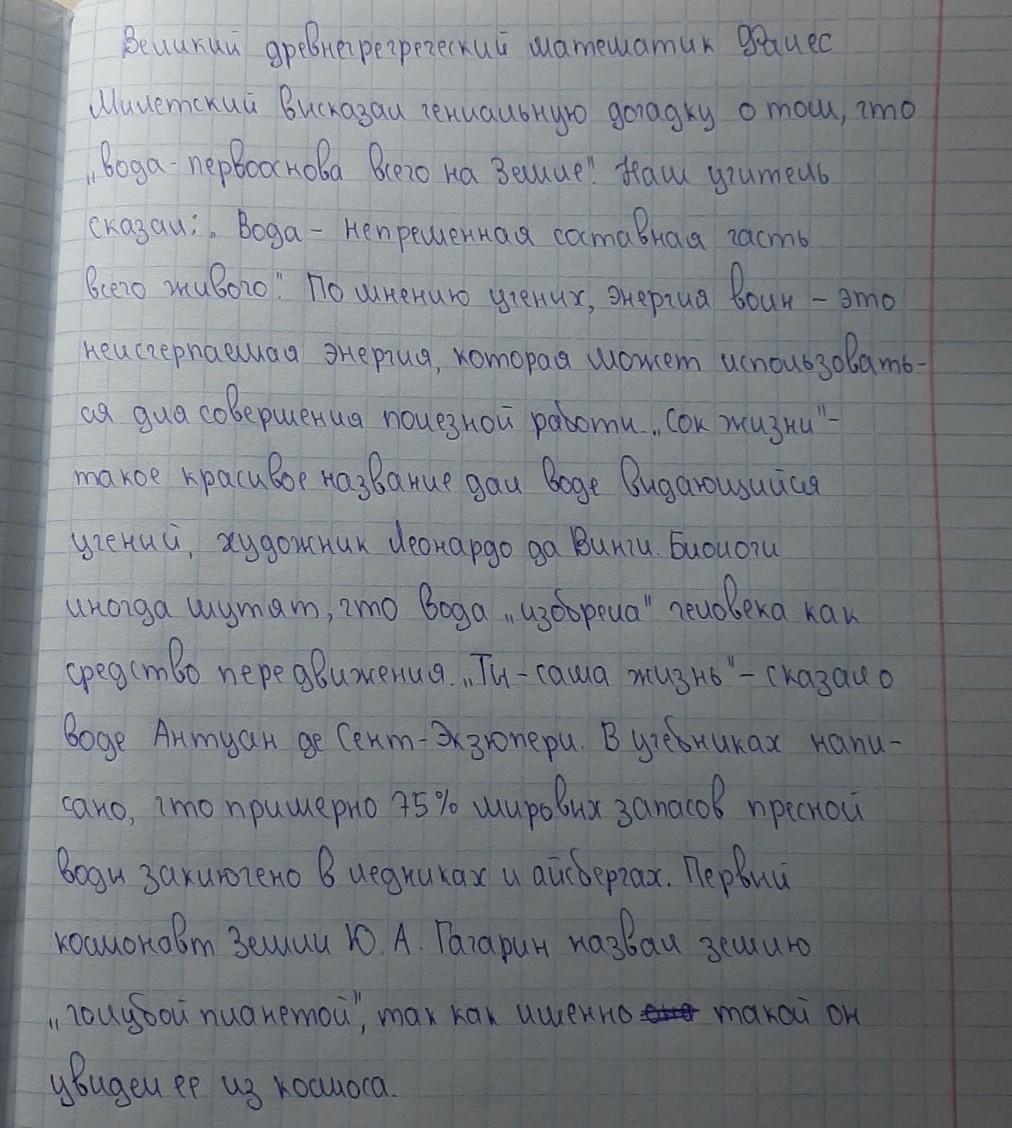 Великий древнегрегреческий математик Фалес
Милетский высказал гениальную догадку о том, что
„вода - первооснова всего на Земле". Наш учитель
сказал: „Вода - непременная составная часть
всего живого". По мнению ученых, энергия волн - это
неисчерпаемая энергия, которая может использовать-
ся для совершения полезной работы. „Сок жизни" -
такое красивое название дал воде выдающийся
учений, художник Леонардо да Винчи. Биологи
иногда шутят, что вода „изобрела" человека как
средство передвижения. „Ты - сама жизнь" - сказал о
воде Антуан де Сент-Экзюпери. В учебниках напи-
сано, что примерно 75% мировых запасов пресной
воды заключено в ледниках и айсбергах. Первый
космонавт Земли Ю. А. Гагарин назвал землю
„голубой планетой", так как именно такой он
увидел ее из космоса.